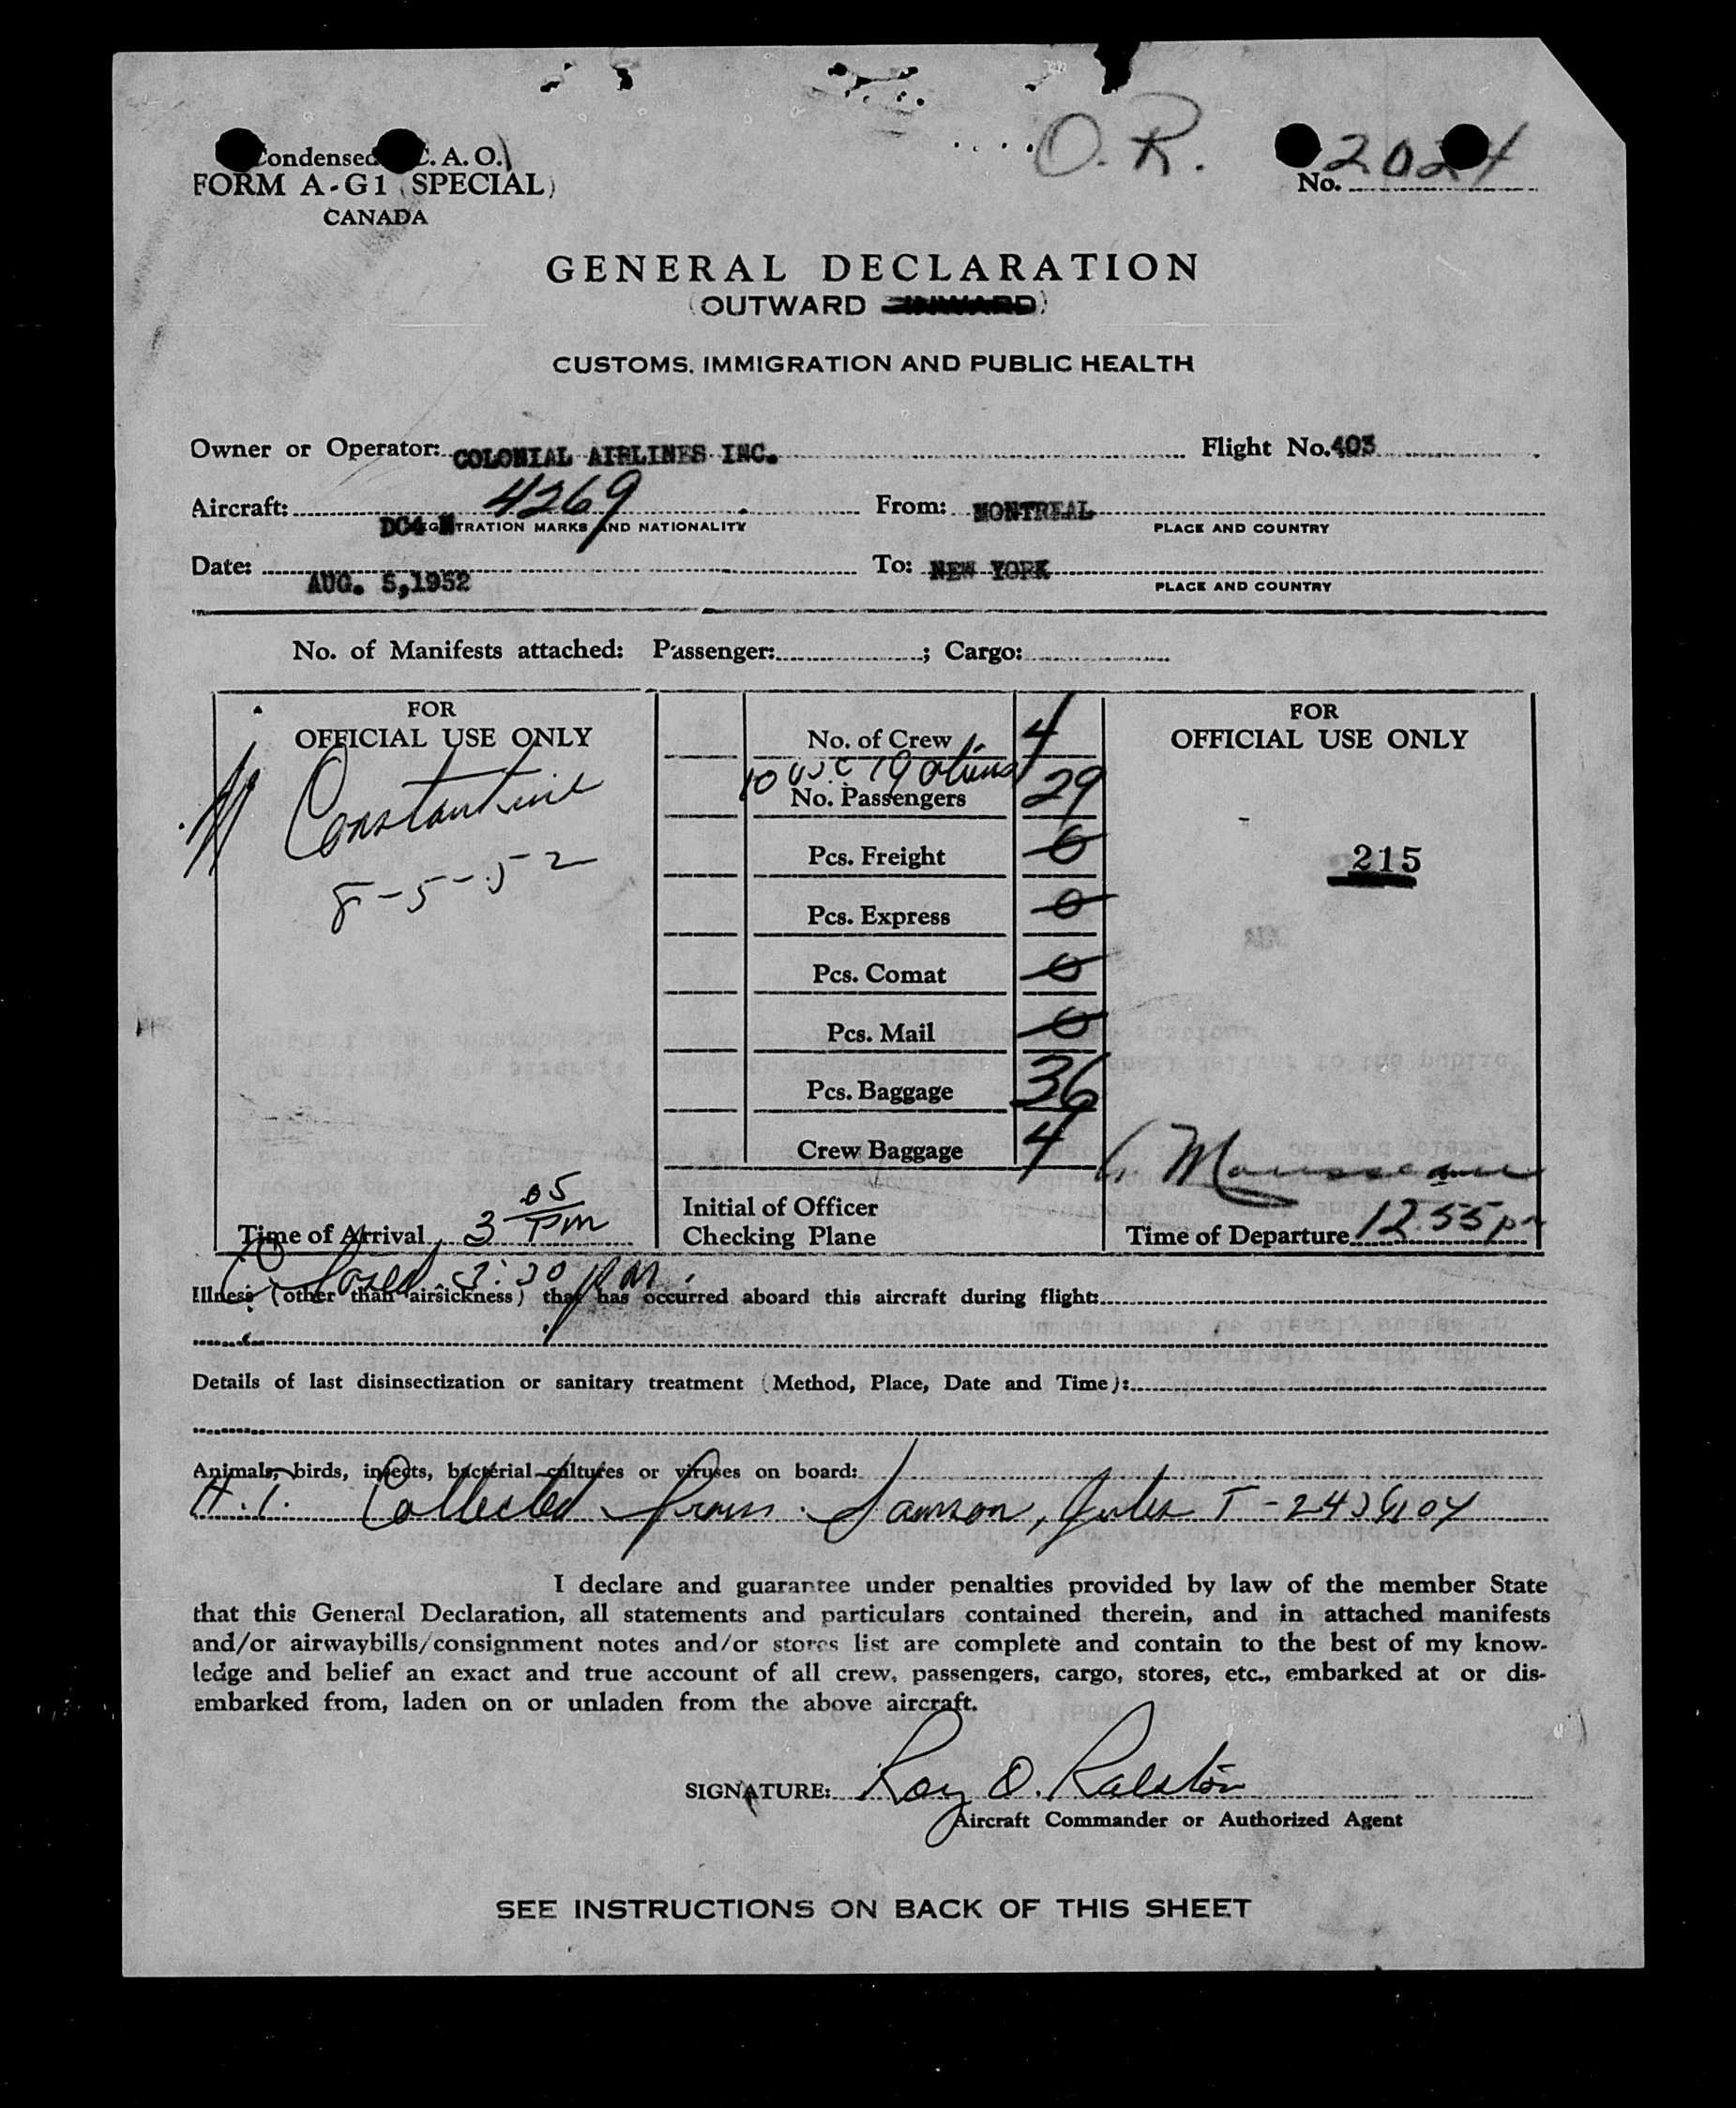 O. R.
Condensed C. A. O.)
No. 2024
FORM A-G1 (SPECIAL)
CANADA
GENERAL DECLARATION
(OUTWARD INWARD)
CUSTOMS, IMMIGRATION AND PUBLIC HEALTH
Owner or Operator: COLONIAL AIRLINES INC. Flight No. 403
Aircraft: 4269 From: MONTREAL
DC4 N REGISTRATION MARKS AND NATIONALITY PLACE AND COUNTRY
Date: AUG. 5,1952 To: NEW YORK
PLACE AND COUNTRY
No. of Manifests attached: Passenger: ; Cargo:
FOR
OFFICIAL USE ONLY
Constantine
8-5-52
Time of Arrival 3 05 PM
No. of Crew 4
10 usc 19 aliens
No. Passengers 29
Pcs. Freight 0
Pcs. Express 0
Pcs. Comat 0
Pcs. Mail 0
Pcs. Baggage 36
Crew Baggage 4
Initial of Officer
Checking Plane
FOR
OFFICIAL USE ONLY
215
Time of Departure 12.55 pm
3:30 PM.
Illness (other than airsickness) that has occurred aboard this aircraft during flight:
Details of last disinsectization or sanitary treatment (Method, Place, Date and Time):
Animals, birds, insects, bacterial cultures or viruses on board:
H.T. Collected from Samson, Jules T-2436104
I declare and guarantee under penalties provided by law of the member State
that this General Declaration, all statements and particulars contained therein, and in attached manifests
and/or airwaybills/consignment notes and/or stores list are complete and contain to the best of my know-
ledge and belief an exact and true account of all crew, passengers, cargo, stores, etc., embarked at or dis-
embarked from, laden on or unladen from the above aircraft.
SIGNATURE: Roy O. Ralston
Aircraft Commander or Authorized Agent
SEE INSTRUCTIONS ON BACK OF THIS SHEET